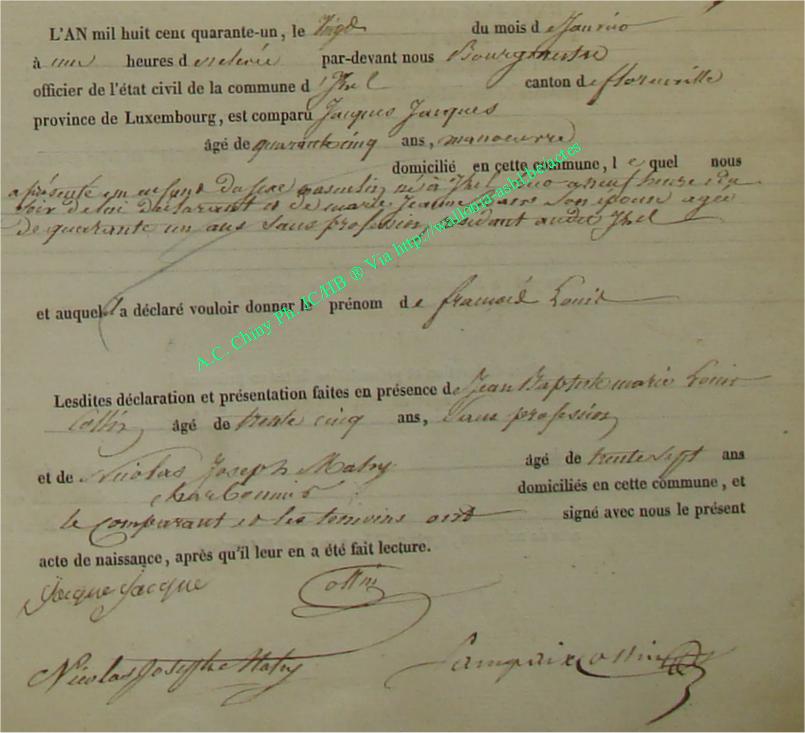 L'AN mil huit cent quarante-un, le vingt du mois de Janvier
à une heures de relevée par-devant nous Bourgmestre
officier de l'état civil de la commune d'Izel canton de florenville
province de Luxembourg, est comparu Jacques Jacques
âgé de quarante cinq ans, manoeuvre
domicilié en cette commune, le quel nous
a présenté un enfant du sexe masculin né à Izel a neuf heures du
soir de lui déclarant et de marie Jeanne son épouse agée
de quarante un ans sans profession résidant audit Izel
et auquel il a déclaré vouloir donner le prénom de françois Louis
Lesdites déclaration et présentation faites en présence de Jean Baptiste marie Louis
Collin âgé de trente cinq ans, sans profession
et de Nicolas Joseph Matry âgé de trente sept ans
charbonnier domiciliés en cette commune, et
le comparant et les temoins ont signé avec nous le présent
acte de naissance, après qu'il leur en a été fait lecture.
Jacque Jacque Collin
Nicolas Joseph Matry Lampaix collin
A.C. Chiny Ph. JC/HB ® Via http://wallonia-asbl.be/actes